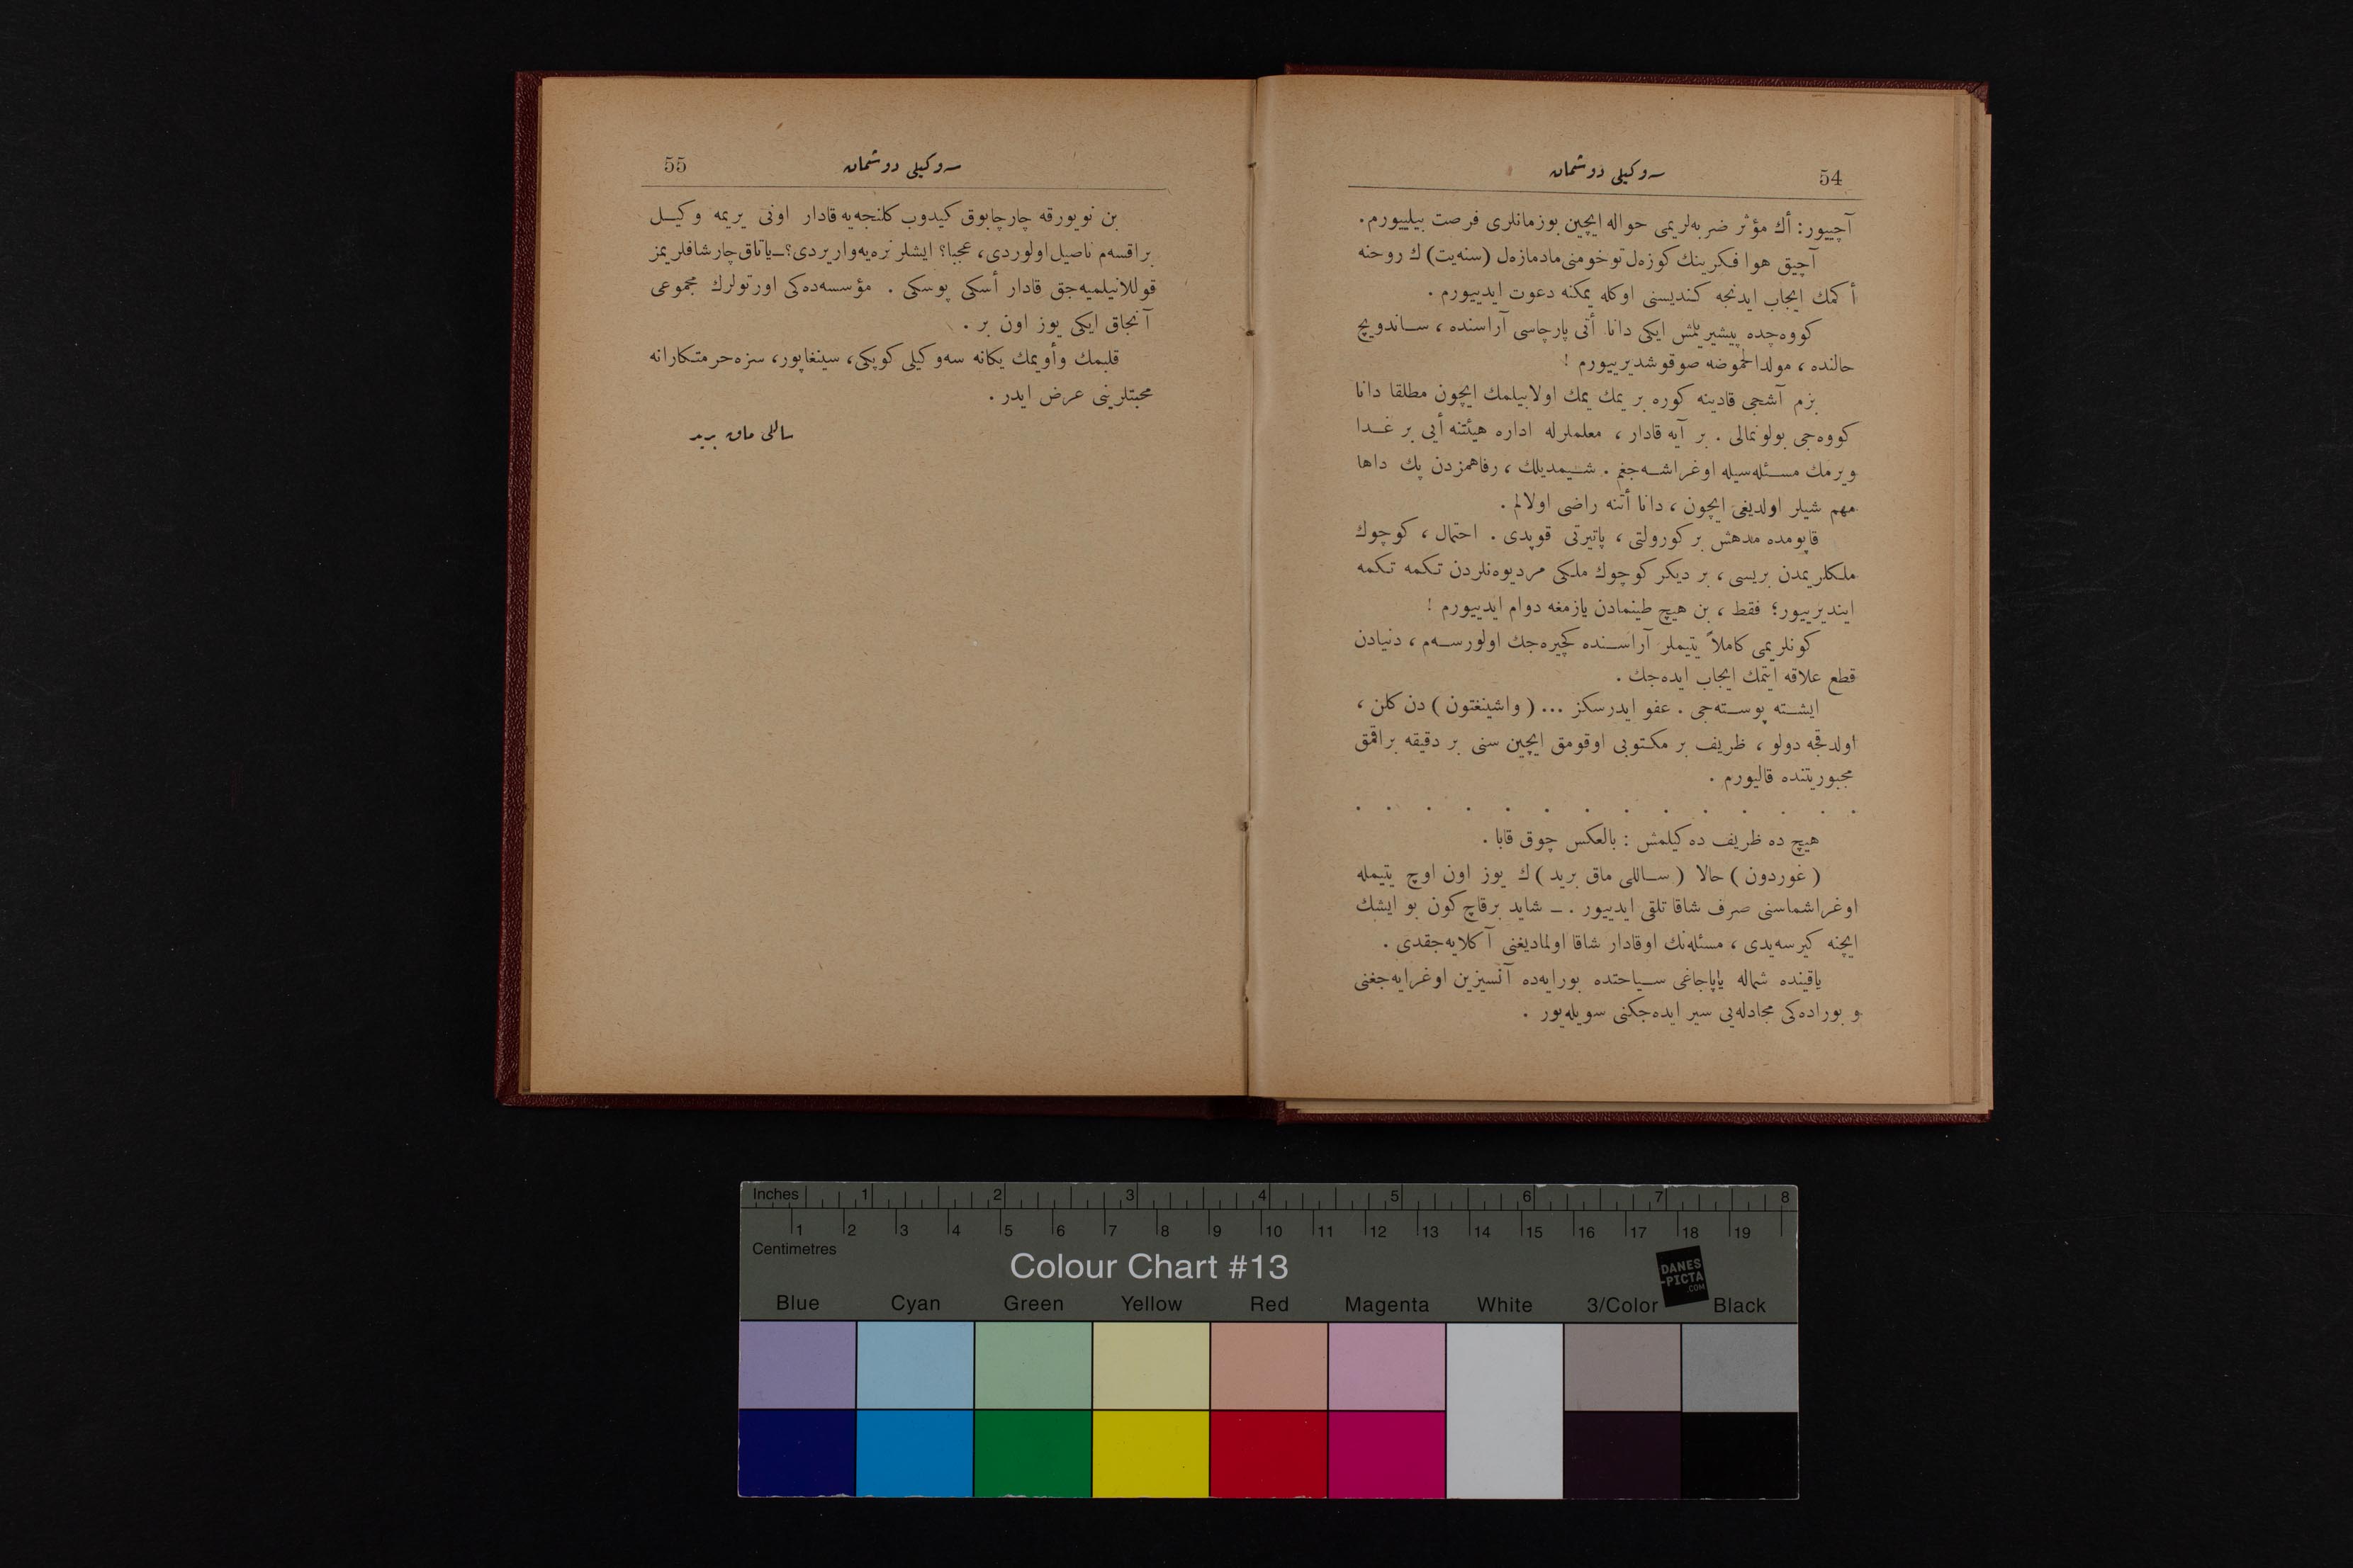 54
سەوكیلی دوشمان
آچییور: أك مؤثر ضربه‌لریمی حواله ایچین بوزمانلری فرصت بیلییورم.
آچیق هوا فكرینك كوزەل توخومنی مادمازەل (سنەیت) ك روحنه
أكمك ایجاب ایدنجه كندیسنی اوكله یمكنه دعوت ایدییورم .
كووەچده پیشیریلمش ایكی دانا أتی پارچاسی آراسنده ، ساندویچ
حالنده ، مولدالحموضه صوقوشدیرییورم !
بزم آشجی قادینه كوره بر یمك یمك اولابیلمك ایچون مطلقا دانا
كووەجی بولونمالی . بر آیه قادار ، معلملرله اداره هیئتنه أیی بر غدا
ویرمك مسئله‌سیله اوغراشه‌جغم . شیمدیلك ، رفاهمزدن پك داها
مهم شیلر اولدیغی ایچون ، دانا أتنه راضی اولالم .
قاپومده مدهش بر كورولتی ، پاتیرتی قوپدی . احتمال ، كوچوك
ملكلریمدن بریسی ، بر دیكر كوچوك ملكی مردیوەنلردن تكمه تكمه
ایندیرییور؛ فقط ، بن هیچ طینمادن یازمغه دوام ایدییورم !
كونلریمی كاملاً یتیملر آراسنده كچیره‌جك اولورسه‌م ، دنیادن
قطع علاقه ایتمك ایجاب ایده‌جك .
ایشته پوسته‌جی . عفو ایدرسكز ... ( واشینغتون ) دن كلن ،
اولدقجه دولو ، ظریف بر مكتوبی اوقومق ایچین سنی بر دقیقه براقمق
مجبوریتنده قالیورم .
. . . . . . . . . . . . . .
هیچ ده ظریف ده كیلمش : بالعكس چوق قابا .
( غوردون ) حالا ( ساللی ماق برید ) ك یوز اون اوچ یتیمله
اوغراشماسنی صرف شاقا تلقی ایدییور . ـ شاید برقاچ كون بو ایشك
ایچنه كیرسه‌یدی ، مسئله‌نك اوقادار شاقا اولمادیغنی آكلایه‌جقدی .
یاقینده شماله یاپاجاغی سیاحتده بورایه‌ده آنسیزین اوغرایه‌جغنی
و بوراده‌كی مجادله‌یی سیر ایده‌جكنی سویله‌یور .
55
سەوكیلی دوشمان
بن نویورقه چارچابوق كیدوب كلنجه‌یه قادار اونی یریمه وكیل
براقسه‌م ناصیل اولوردی، عجبا؟ ایشلر نره‌یه‌واریردی؟ـ یاتاق چارشافلریمز
قوللانیلمیه‌جق قادار أسكی پوسكی . مؤسسه‌ده‌كی اورتولرك مجموعی
آنجاق ایكی یوز اون بر .
قلبمك وأویمك یكانه سەوكیلی كوپكی، سینغاپور، سزه‌حرمتكارانه
محبتلرینی عرض ایدر .
ساللی ماق برید
Inches 1 2 3 4 5 6 7 8
1 2 3 4 5 6 7 8 9 10 11 12 13 14 15 16 17 18 19
Centimetres
Colour Chart #13
DANES
-PICTA
.COM
Blue Cyan Green Yellow Red Magenta White 3/Color Black